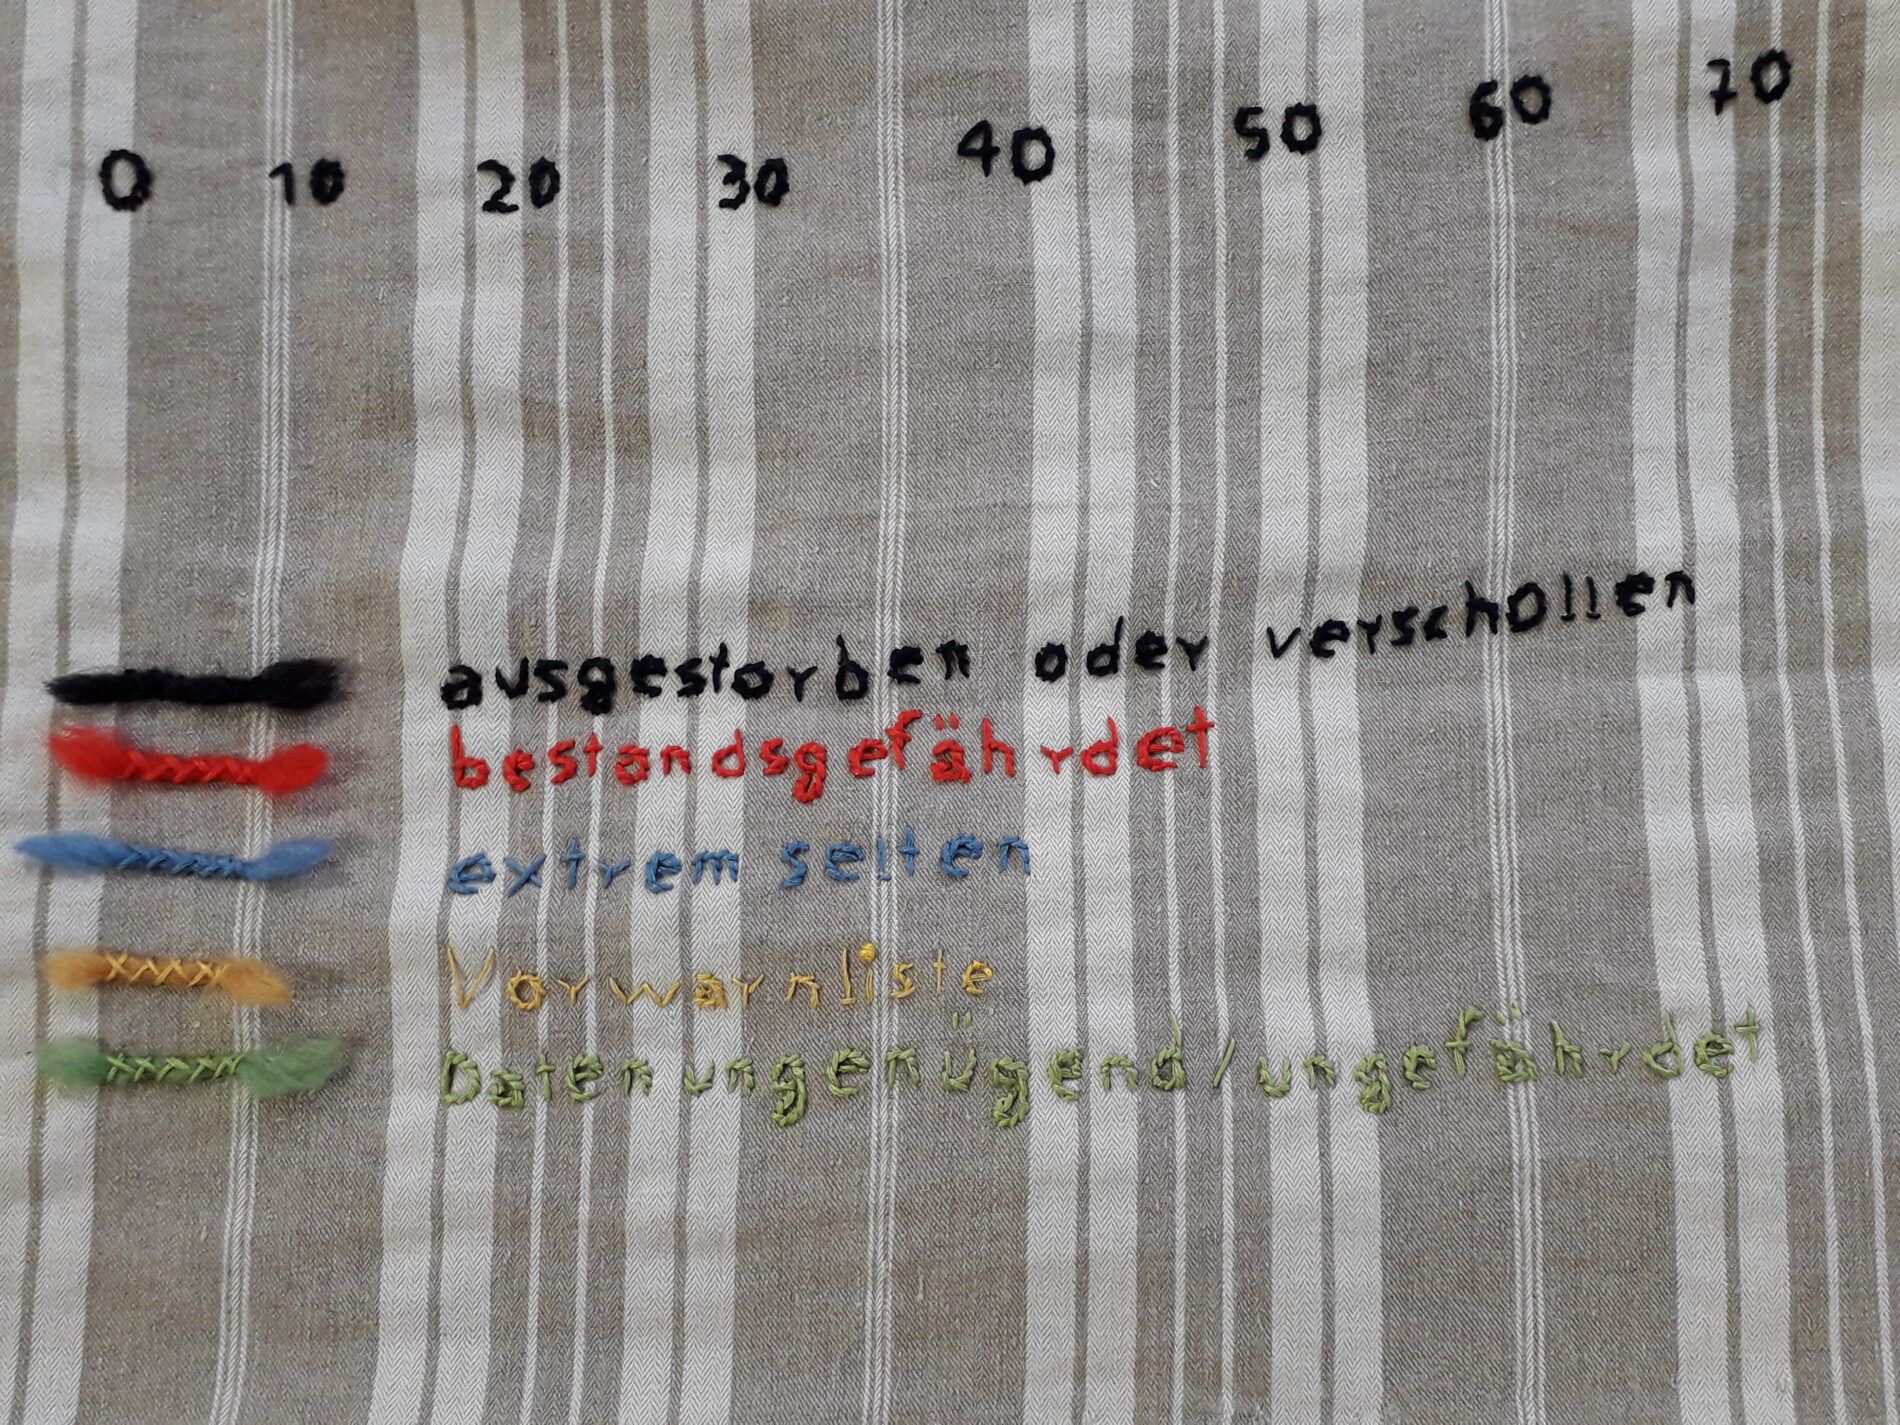 0 10 20 30 40 50 60 70
ausgestorben oder verschollen
bestandsgefährdet
extrem selten
Vorwarnliste
Daten ungenügend/ungefährdet